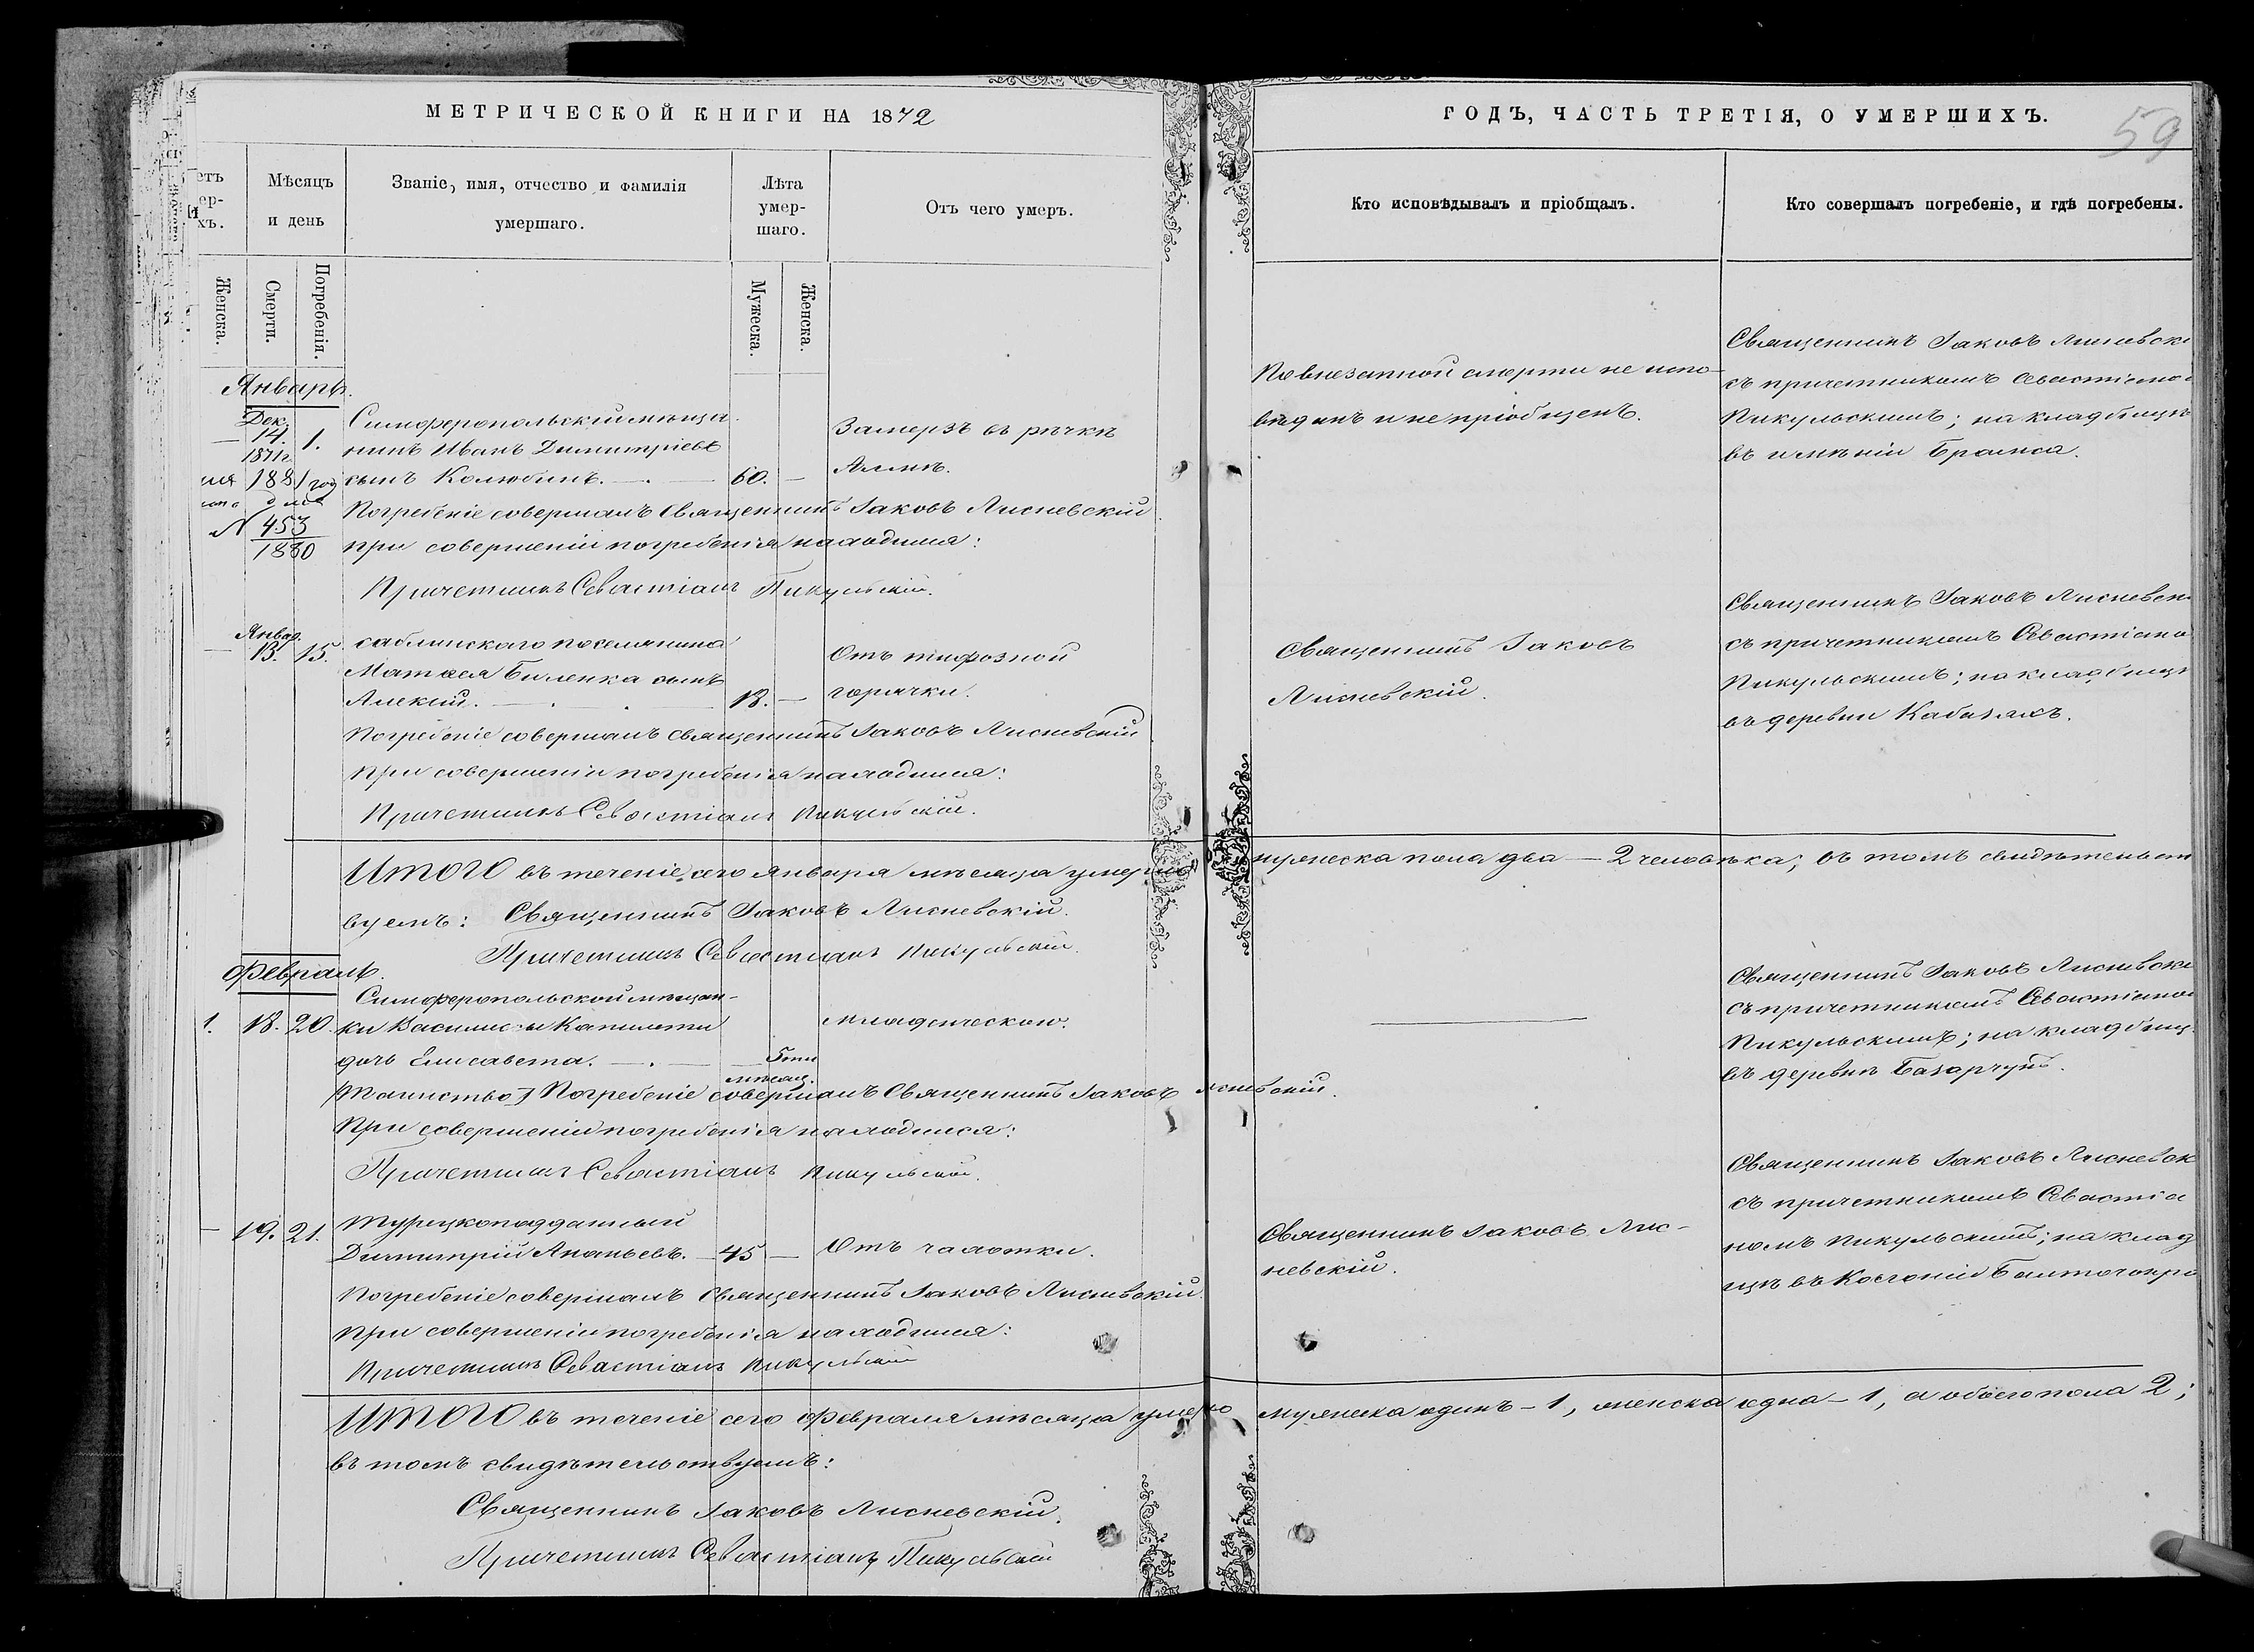 МЕТРИЧЕСКОЙ КНИГИ НА 1872
ГОДЪ, ЧАСТЬ ТРЕТІЯ, О УМЕРШИХЪ.
59
етъ
ер-
хъ.
Мѣсяцъ
и день
Званіе, имя, отчество и фамилія
умершаго.
Лѣта
умер-
шаго.
Отъ чего умеръ.
Кто исповѣдывалъ и пріобщалъ.
Кто совершалъ погребеніе, и гдѣ погребены.
Женска.
Смерти.
Погребенія.
Мужеска.
Женска.
Январь.
Дек.
14.
1871 г.
1.
Симферопольскій мѣща-
нинъ Иванъ Димитріевъ
сынъ Колюбинъ. — 60. —
Замерзъ въ рѣчкѣ
Альмѣ.
По внезапной смерти не испо-
вѣданъ и не пріобщенъ.
Священникъ Іаковъ Лисневскі
съ причетникомъ Севастіано
Пикульскимъ; на кладбищѣ
въ имѣніи Браиса.
1881 год
N 453
1880
Погребеніе совершалъ Священникъ Іаковъ Лисневскій
при совершеніи погребенія находился:
Причетникъ Севастіанъ Пикульскій.
Январ.
— 13. 15.
саблинскаго поселянина
Матвея Биленка сынъ
Алексій. — 13. —
Отъ тифозной
горячки.
Священникъ Іаковъ
Лисневскій.
Священникъ Іаковъ Лисневск
съ причетникомъ Севастіано
Пикульскимъ; на кладбищѣ
въ деревни Кабазахъ.
Погребеніе совершалъ Священникъ Іаковъ Лисневскій
при совершеніи погребенія находился:
Причетникъ Севастіанъ Пикульскій.
Итого въ теченіе сего Января мѣсяца умерло мужеска пола два — 2 человѣка; въ томъ свидѣтельст
вуемъ: Священникъ Іаковъ Лисневскій.
Причетникъ Севастіанъ Пикульскій.
Февраль.
1. 18. 20.
Симферопольской мѣщан-
ки Василисы
дочь Елисавета. — 5ти
мѣсяц.
младенческою.
Священникъ Іаковъ Лисневск
съ причетникомъ Севастіано
Пикульскимъ; на кладбищ
въ деревнѣ Базарчукъ.
Погребеніе совершалъ Священникъ Іаковъ Лисневскій.
При совершеніи погребенія находился:
Причетникъ Севастіанъ Пикульскій.
— 19. 21.
Турецкоподданный
Димитрій Ананьевъ. — 45 —
Отъ чахотки.
Священникъ Іаковъ Лис-
невскій.
Священникъ Іаковъ Лисневск
съ причетникомъ Севастіа
номъ Пикульскимъ; на клад
Погребеніе совершалъ Священникъ Іаковъ Лисневскій.
при совершеніи погребенія находился:
Причетникъ Севастіанъ Пикульскій
Итого въ теченіе сего Февраля мѣсяца умерло мужеска одинъ – 1, женска одна – 1, а обоего пола 2;
въ томъ свидѣтельствуемъ:
Священникъ Іаковъ Лисневскій.
Причетникъ Севастіанъ Пикульскій